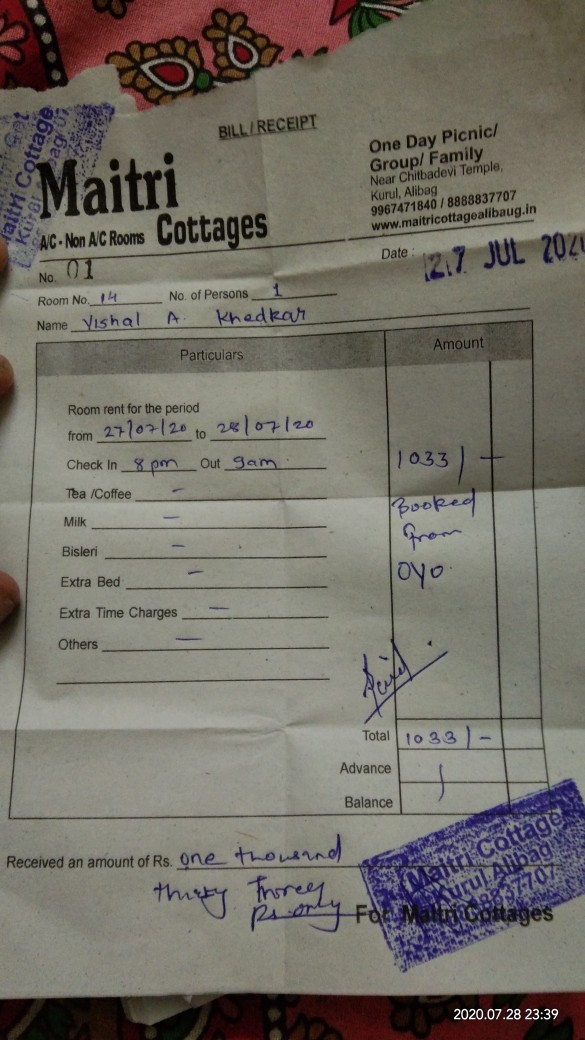 BILL/RECEIPT
Maitri
A/C - Non A/C Rooms Cottages
One Day Picnic/
Group/ Family
Near Chitbadevi Temple,
Kurul, Alibag
9967471840 / 8888837707
www.maitricottagealibaug.in
Maitri Cottage
No. 01
Date : 27 JUL 202
Room No. 14 No. of Persons 1
Name Vishal A. Khedkar
Particulars Amount
Room rent for the period
from 27/07/20 to 28/07/20
Check In 8 pm Out 9am 1033/-
Tea /Coffee -
Booked
Milk -
from
Bisleri -
OYO
Extra Bed -
Extra Time Charges -
Others -
Paid
Total 1033/-
Advance
Balance
Received an amount of Rs. one thousand
thirty Threey
Rs. only
For Maitri Cottages
Maitri Cottage
Kurul Alibag
8837707
2020.07.28 23:39